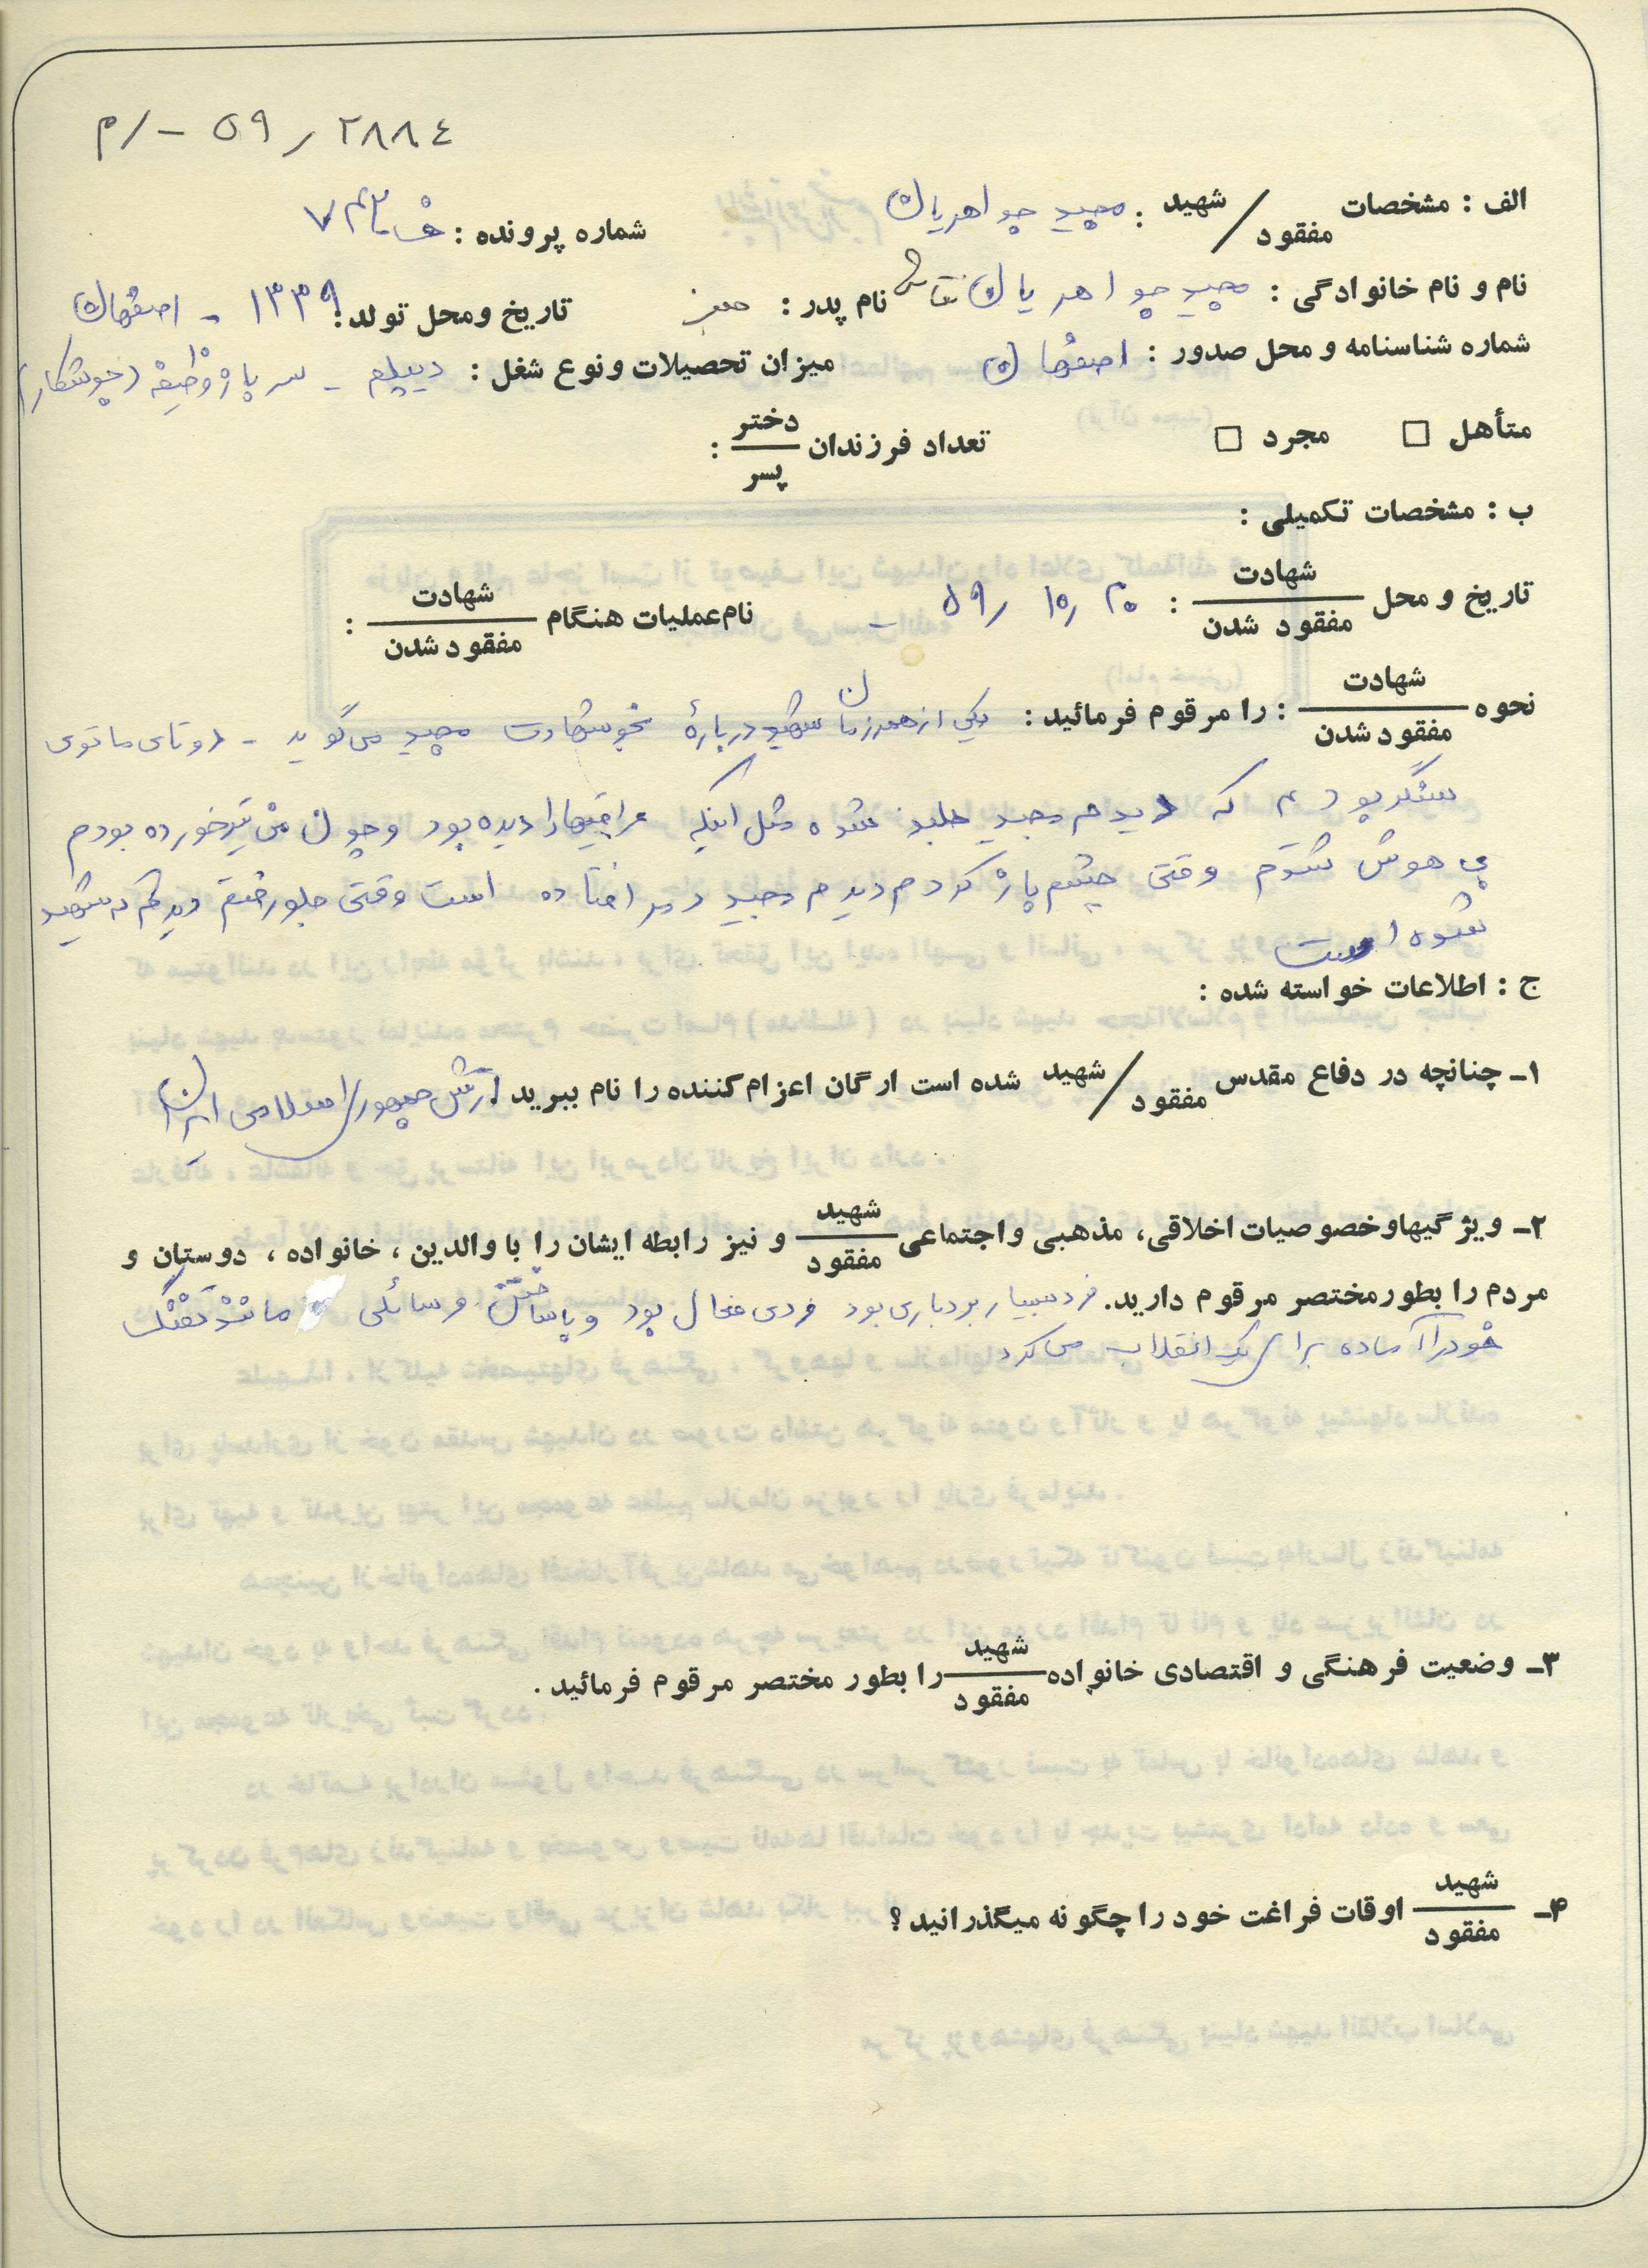 م/- ۵۹/۲۸۸٤
الف : مشخصات شهید/مفقود : مجید جواهریان
شماره پرونده :
نام و نام خانوادگی : مجید جواهریان نام پدر : تاریخ ومحل تولد : ۱۳۳۹ - اصفهان
شماره شناسنامه و محل صدور : اصفهان میزان تحصیلات ونوع شغل : دیپلم - سرباز وظیفه (جوشکار)
متأهل □ مجرد □ تعداد فرزندان دختر/پسر :
ب : مشخصات تکمیلی :
تاریخ و محل شهادت/مفقود شدن : ۵۹/۱۰/۲۰ - نام عملیات هنگام شهادت/مفقود شدن :
نحوه شهادت/مفقود شدن : را مرقوم فرمائید : یکی از همرزمان شهید دربارهٔ نحو شهادت مجید می گوید - دوتای ما توی
سنگر بودیم که دیدم مجید بلند شده مثل اینکه عراقیها را دیده بود و چون من تیر خورده بودم
بی هوش شدم وقتی چشم باز کردم دیدم مجید دمر افتاده است وقتی جلو رفتم دیدم که شهید
شده است
ج : اطلاعات خواسته شده :
۱ـ چنانچه در دفاع مقدس شهید/مفقود شده است ارگان اعزام کننده را نام ببرید . ارتش جمهوری اسلامی ایران
۲ـ ویژگیهاوخصوصیات اخلاقی، مذهبی واجتماعی شهید/مفقود و نیز رابطه ایشان را با والدین ، خانواده ، دوستان و
مردم را بطورمختصر مرقوم دارید. فرد بسیار بردباری بود فردی فعال بود و با ساختن وسائلی مانند تفنگ
خود را آماده برای یک انقلاب می کرد
۳ـ وضعیت فرهنگی و اقتصادی خانواده شهید/مفقود را بطور مختصر مرقوم فرمائید .
۴ـ شهید/مفقود اوقات فراغت خود را چگونه میگذرانید ؟